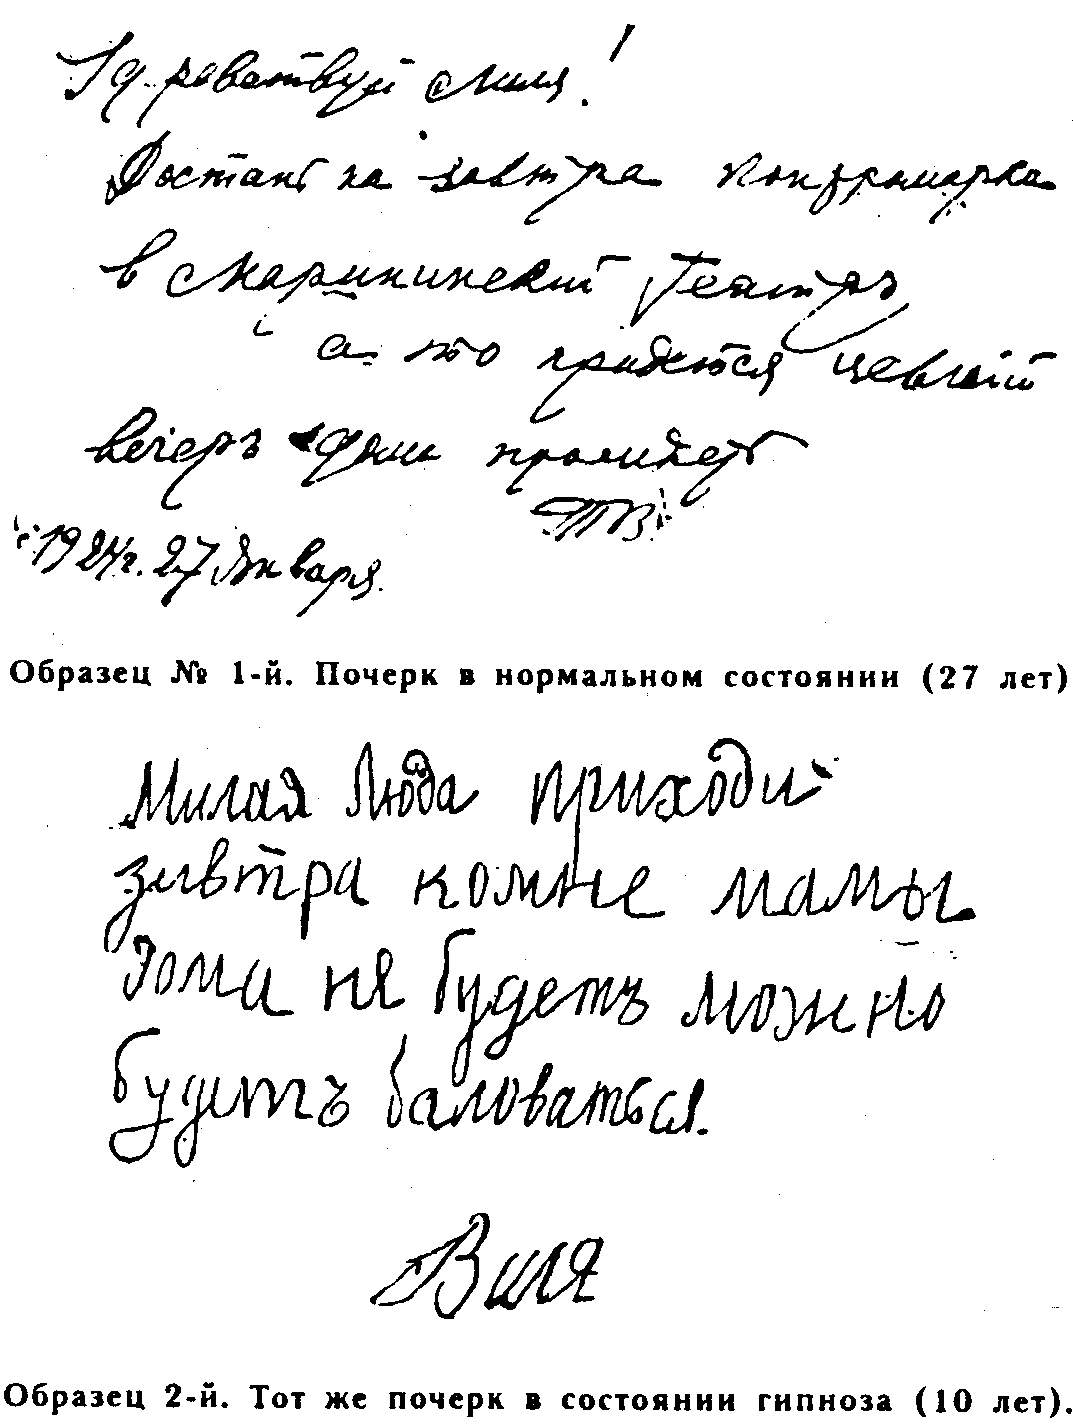 Здравствуй Миля!
Достань на завтра контрмарка
в Мариинский Театръ
а то придется целый
вечеръ дома
1924г. 27 Января.
Образец № 1-й. Почерк в нормальном состоянии (27 лет)
Милая Люда приходи
завтра комне мамы
дома не будетъ можно
будетъ баловаться.
Виля
Образец 2-й. Тот же почерк в состоянии гипноза (10 лет).